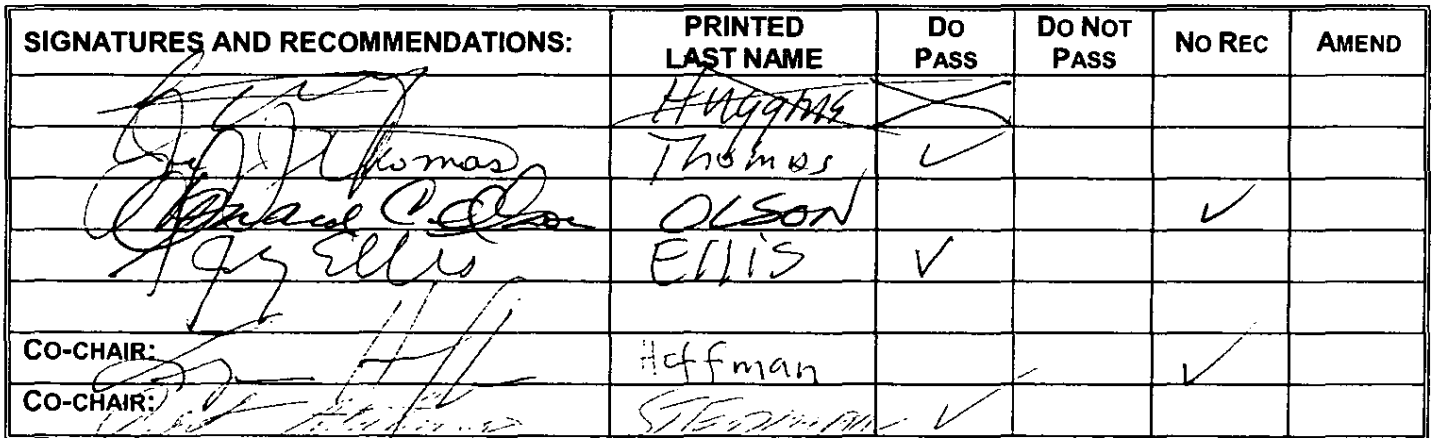 SIGNATURES AND RECOMMENDATIONS: PRINTED LAST NAME DO PASS DO NOT PASS NO REC AMEND
Huggins
Thomas Thomas ✓
Olson OLSON ✓
Ellis Ellis ✓
CO-CHAIR: Hoffman ✓
CO-CHAIR: STEDMAN ✓